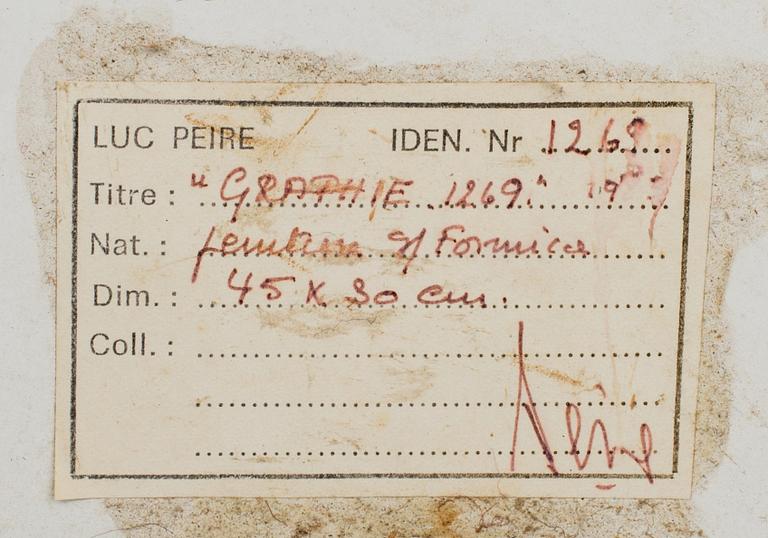 LUC PEIRE IDEN. Nr 1269
Titre : "GRAPHIE 1269."
Nat. : peinture s/ Formica
Dim. : 45 x 30 cm.
Coll. :
Peire